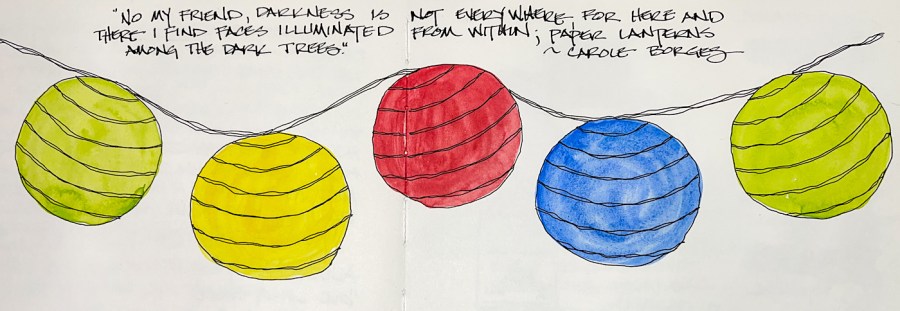 "NO MY FRIEND, DARKNESS IS NOT EVERYWHERE, FOR HERE AND
THERE I FIND FACES ILLUMINATED FROM WITHIN; PAPER LANTERNS
AMONG THE DARK TREES." ~ CAROLE BORGES